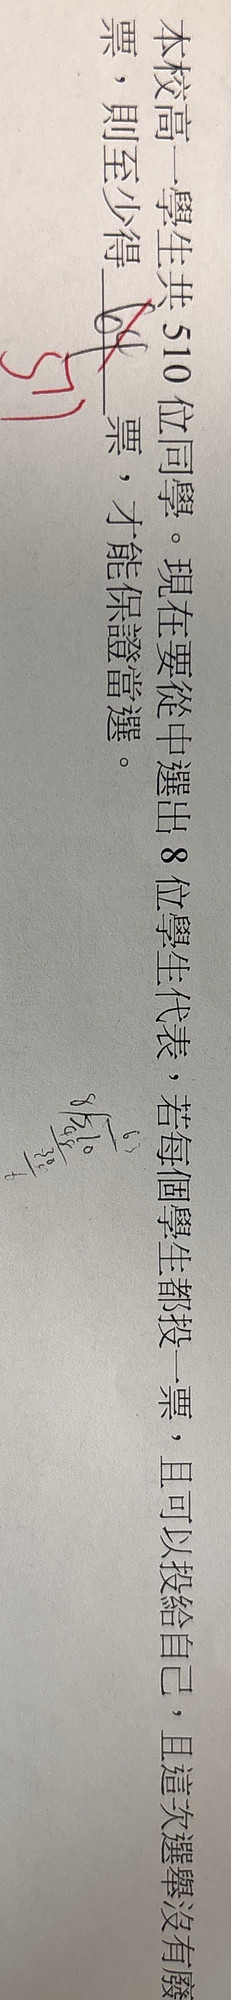 本校高一學生共 510 位同學。現在要從中選出 8 位學生代表，若每個學生都投一票，且可以投給自己，且這次選舉沒有廢
票，則至少得 64 票，才能保證當選。
57
63
8/510
48
30